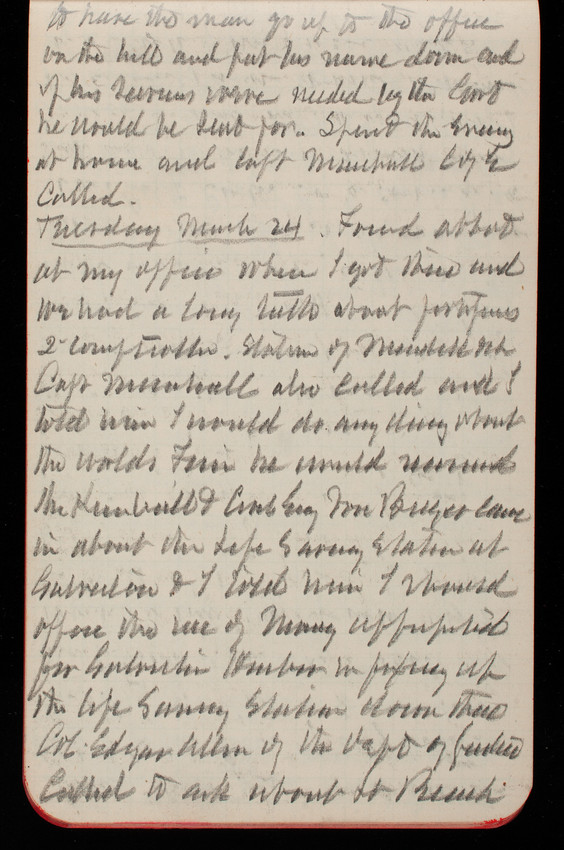 to have the man go up to the office
on the hill and put his name down and
if his services were needed by the Govt
he would be sent for. Spent the Evening
at home and Capt Marshall
Called.
Tuesday March 24. Found Abbot
at my office when I got there and
we had a long talk about
2d Comptroller. Station of
Capt Marshall also called and I
told him I would do anything about
the Worlds Fair he would
Mr Kimball & came
in about the Life Saving Station at
Galveston & I told him I should
oppose the use of Money appropriated
for Galveston Harbor in fixing up
the life Saving Station down there
Col Edgar Allen of the Dept of Justice
Called to ask about